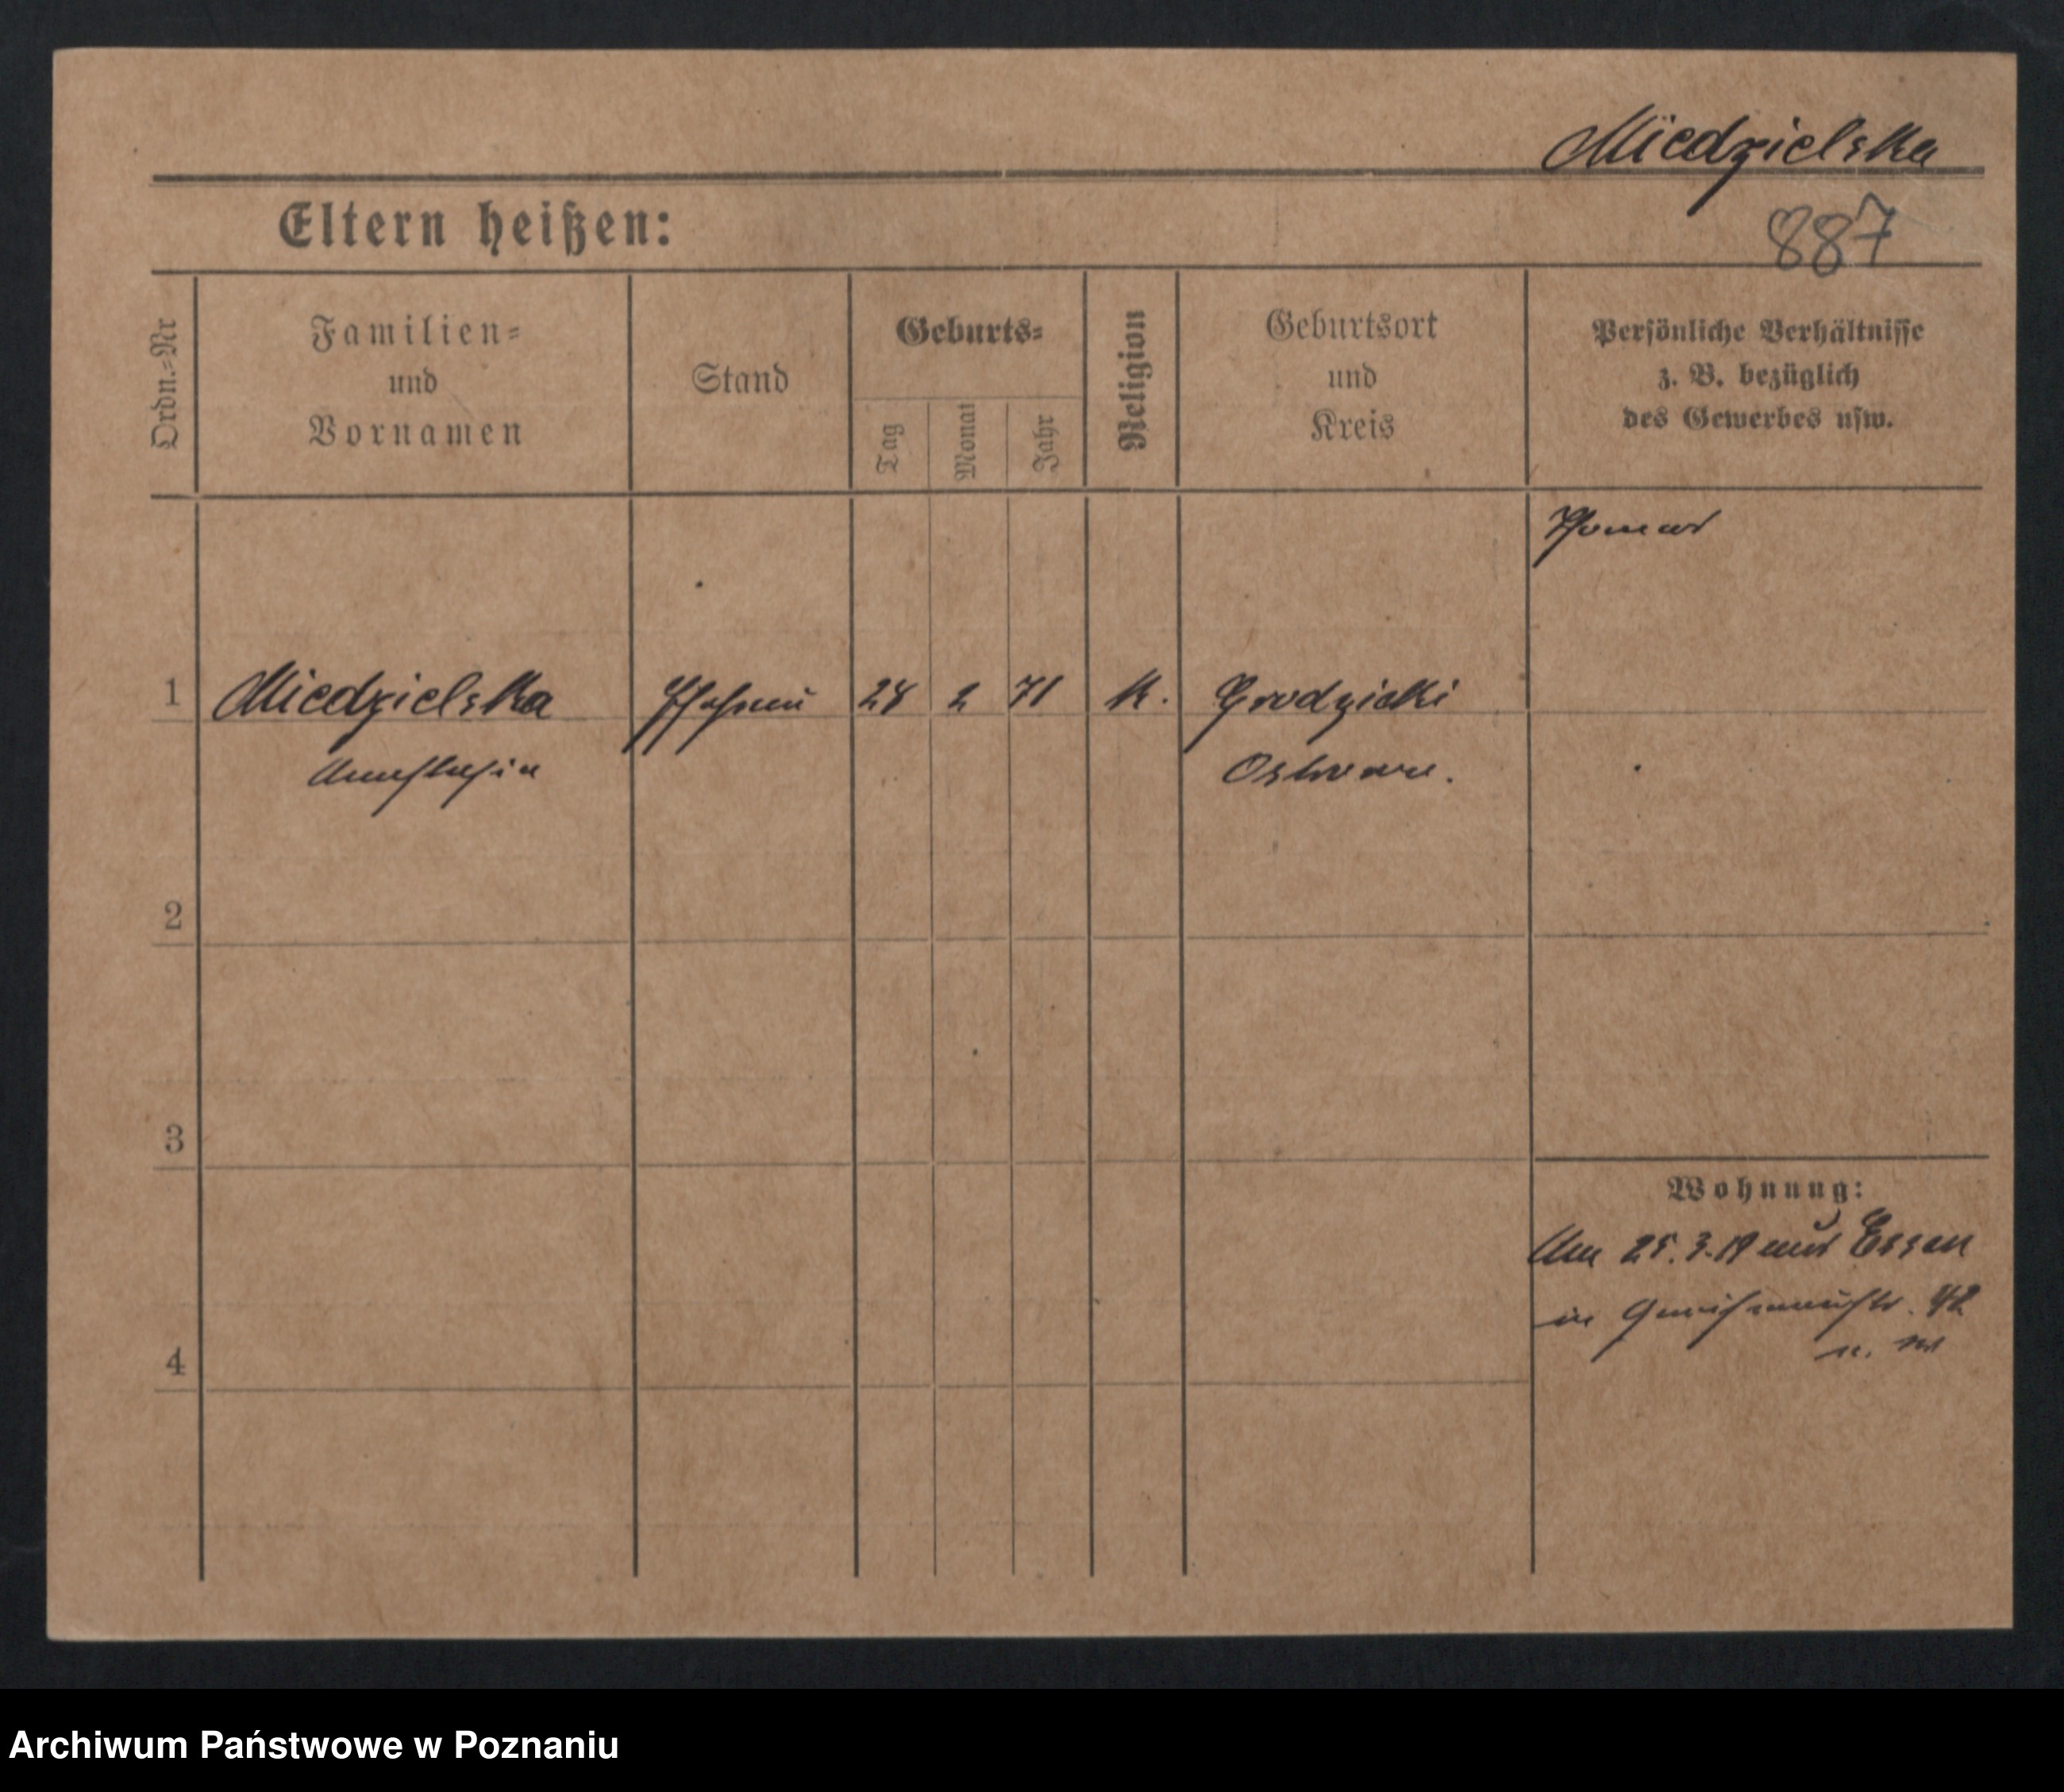 Miedzielska
Eltern heißen:
887
Ordn.=Nr
Familien=
und
Vornamen
Stand
Geburts=
Tag
Monat
Jahr
Religion
Geburtsort
und
Kreis
Persönliche Verhältnisse
z. B. bezüglich
des Gewerbes usw.
1
Miedzielska
Anastasia
Ehefrau
2
71
K.
Grodzicki
Ostrowo.
2
3
Wohnung:
Am 25.3.19 aus Essen
in
4
Archiwum Państwowe w Poznaniu